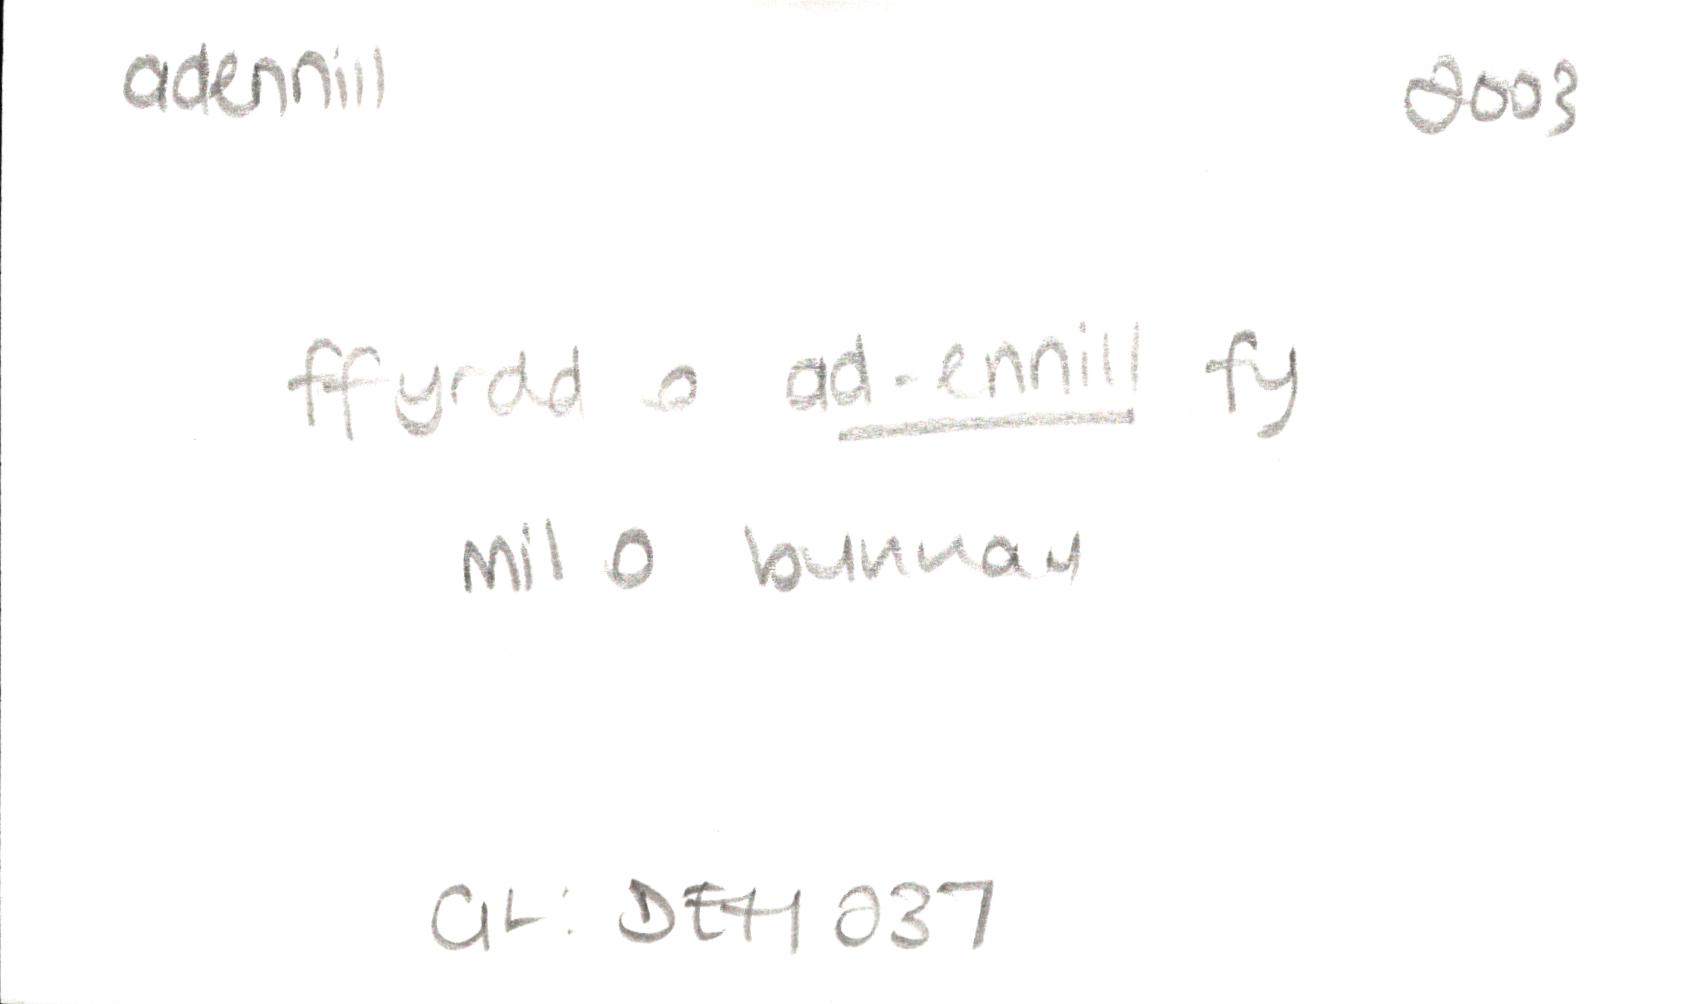 adennill 2003
ffyrdd o ad-ennill fy
mil o bunnau
GL: DEH 237